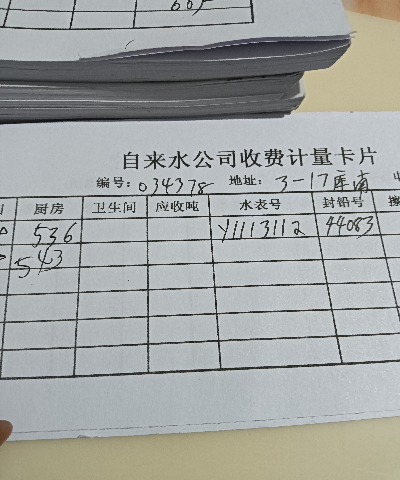 自来水公司收费计量卡片
编号: 034378 地址: 3-17库南
厨房 卫生间 应收吨 水表号 封铅号
536 Y1113112 44083
543